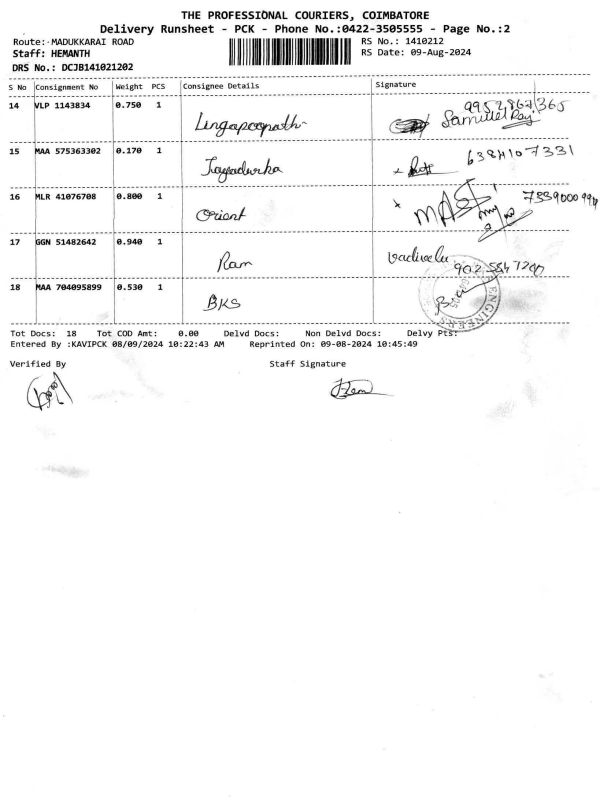 THE PROFESSIONAL COURIERS, COIMBATORE
Delivery Runsheet - PCK - Phone No.:0422-3505555 - Page No.:2
Route:-MADUKKARAI ROAD RS No.: 1410212
Staff: HEMANTH RS Date: 09-Aug-2024
DRS No.: DCJB141021202
S No Consignment No Weight PCS Consignee Details Signature
14 VLP 1143834 0.750 1 Lingapoopathi 9952867365 Samuel Raj
15 MAA 575363302 0.170 1 Jayadurka 6384107331
16 MLR 41076708 0.800 1 Orient MAS
17 GGN 51482642 0.940 1 Ram Vadivelu
18 MAA 704095899 0.530 1 BKS
ENGINEERS
Tot Docs: 18 Tot COD Amt: 0.00 Delvd Docs: Non Delvd Docs: Delvy Pts:
Entered By :KAVIPCK 08/09/2024 10:22:43 AM Reprinted On: 09-08-2024 10:45:49
Verified By Staff Signature
Hem